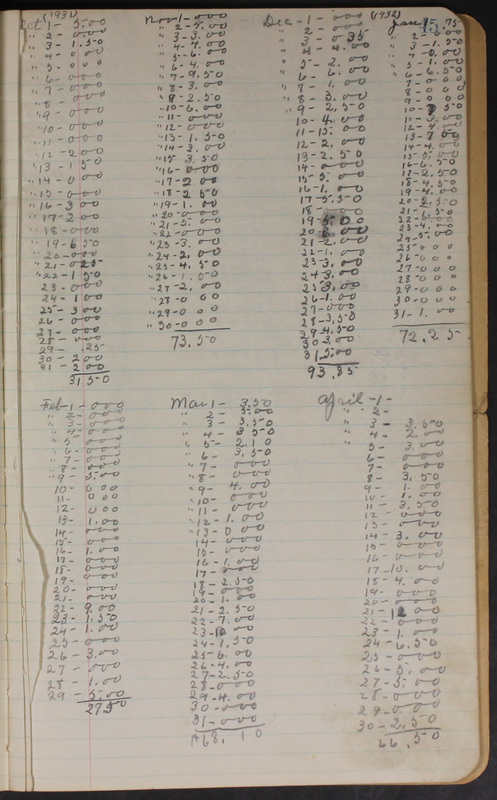 Oct 1 - 5.00 (1931)
" 2 - 000
" 3 - 1.50
" 4 - 000
" 5 - 000
" 6 - 000
" 7 - 000
" 8 - 000
" 9 - 000
" 10 - 000
" 11 - 000
" 12 - 200
" 13 - 150
" 14 - 000
" 15 - 000
" 16 - 300
" 17 - 200
" 18 - 000
" 19 - 650
" 20 - 000
" 21 - 025
" 22 - 150
23 - 000
24 - 100
25 - 300
26 - 000
27 - 000
28 - 000
29 - .25
30 - 200
31 - 200
31 50
Nov 1 - 000
" 2 - 5.00
" 3 - 3.00
" 4 - 7.00
" 5 - 6.00
" 6 - 4.00
" 7 - 9.50
" 8 - 3.00
" 9 - 2.50
" 10 - 6.00
" 11 - 000
" 12 - 000
" 13 - 1.50
" 14 - 3.00
" 15 3.50
" 16 - 000
" 17 - 2.00
" 18 - 2.50
" 19 - 1.00
" 20 - 000
" 21 - 5.00
" 22 - 000
" 23 - 3.00
" 24 - 2.00
" 25 - 4.50
" 26 - 1.50
" 27 - 2.00
" 28 - 000
" 29 - 000
" 30 - 000
73.50
Dec - 1 - 000
" 2 - 000
" 3 - 0 35
" 4 - 4.00
" 5 - 2.00
" 6 - 6.00
" 7 - 1.00
" 8 - 3.00
" 9 - 2.50
10 - 4.00
11 - 15.00
12 - 2.00
13 - 2.50
14 - 000
15 - 5.00
16 - 1.00
17 - 5.50
18 - 000
19 5.00
20
21 - 2.00
22 - 1.00
23 - 3.00
24 - 3.00
25 3.00
26 - 1.00
27 - 000
28 - 3.50
29 - 4.50
30 3.00
31 5.00
93.85
(1932)
Jan 1 - .75
2 -
3 - 1.50
4 -
5 - 1.00
6 - 6.50
7 - 000
8 - 000
9 - 000
10 -
11 - 000
12 -
13 -
14 -
15 -
16 - 6.50
17 - 2.50
18 - 4.50
19 - 4.00
20 - 2.50
21 - 6.50
22 - 6.00
23 - 4.00
24 - 5.00
25 - 000
26 - 000
27 - 000
28 - 000
29 - 000
30 - 000
31 - 1.00
72.25
Feb - 1 - 000
" 2 - 000
" 3 - 000
" 4 - 000
" 5 - 000
" 6 - 000
" 7 - 000
" 8 - 000
" 9 - 5.00
10 - 000
11 - 000
12 - 000
13 - 1.00
14 - 000
15 - 000
16 - 1.00
17 - 000
18 - 000
19 - 000
20 - 000
21 - 000
22 - 9.00
23 - 1.50
24 - 1.00
25 - 000
26 - 3.00
27 - 000
28 - 1.00
29 - 5.00
27 50
Mar 1 - 3.50
" 2 - 5.00
" 3 - 3.50
" 4 - 3.50
" 5 - 2.10
" 6 - 3.50
" 7 - 000
" 8 - 000
" 9 - 4.00
" 10 - 000
" 11 - 000
" 12 - 1.00
" 13 - 000
14 - 000
15 - 000
16 - 1.00
17 - 000
18 - 2.50
19 - 000
20 - 1.00
21 - 2.50
22 - 7.00
23 - 10.00
24 - 1.50
25 - 6.00
26 - 4.00
27 - 2.50
28 - 000
29 - 4.00
30 - 000
31 - 000
68.10
April - 1 -
" 2 -
" 3 - 3.50
" 4 - 2.00
" 5 - 3.00
6 - 000
7 - 000
8 - 3.50
9 - 1.00
10 - 1.00
11 - 3.50
12 - 000
13 - 000
14 - 3.00
15 - 000
16 - 000
17 - 10.00
18 - 4.00
19 - 000
20 - 000
21 - 12.00
22 - 000
23 - 1.00
24 - 6.50
25 - 000
26 - 5.00
27 - 5.00
28 - 000
29 - 000
30 - 2.50
66.50